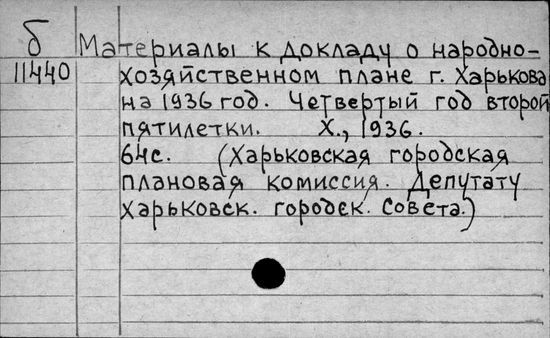 б Материалы к докладу о народно-
11440 хозяйственном плане г. Харькова
на 1936 год. Четвертый год второй
пятилетки. Х., 1936.
64с. (Харьковская городская
плановая комиссия. Депутату
Харьковск. городск. совета.)